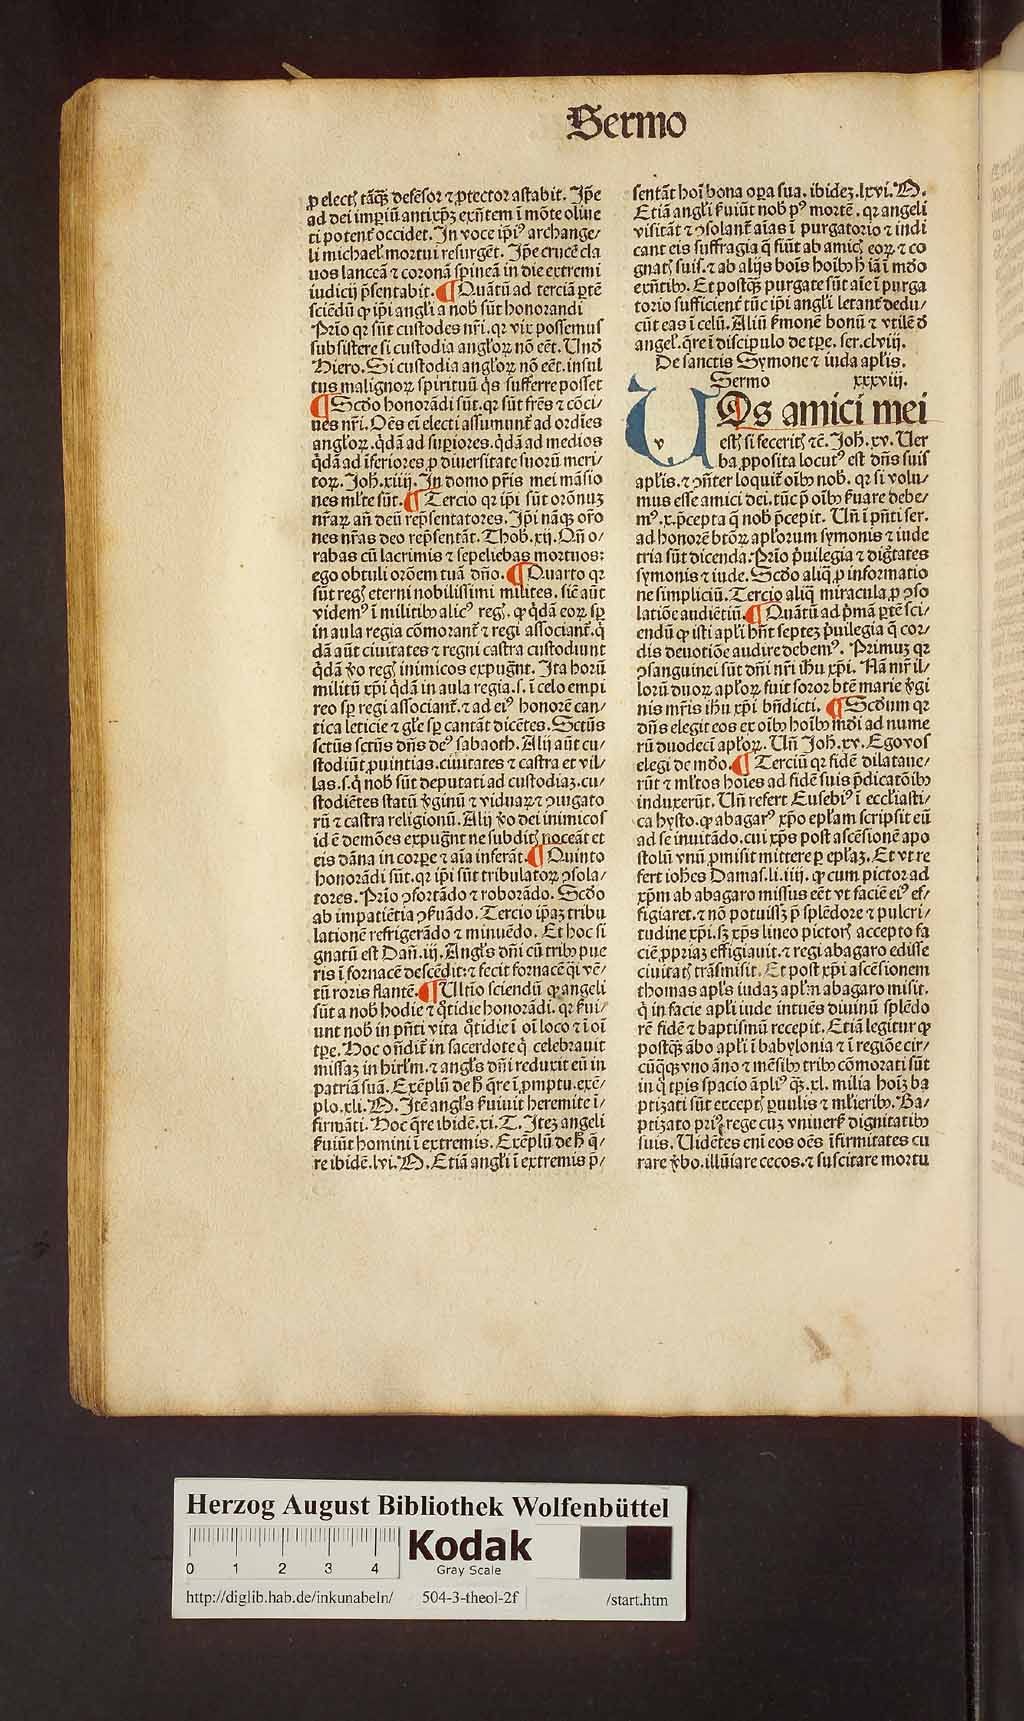 Sermo
ꝓ elect᷒ tāqꝫ defēsor ⁊ ꝓtector astabit. Ip̄e
ad dei imꝑiū antixp̄ꝫ exn̄tem ī mōte oliue
ti potent᷒ occidet. In voce ip̄i⁹ archange⸗
li michael᷒ mortui resurgēt. Ip̄e crucē cla
uos lanceā ⁊ coronā spineā in die extremi
iudicij p̄sentabit. ¶ Quātū ad terciā ꝑtē
sciēdū ꝙ ip̄i angli a nob̄ sūt honorandi
Prīo qr sūt custodes nr̄i. qr vix possemus
subsistere si custodia angloꝝ nō eēt. Vnd̄
Hiero. Si custodia angloꝝ nō eēt. insul
tus malignoꝝ spirituū q̄s sufferre posset
¶ Scd̄o honorādi sūt. qr sūt fr̄es ⁊ cōci⸗
ues nr̄i. Oēs ei electi assumunt᷒ ad ordīes
angloꝝ. q̄dā ad suꝑiores. q̄dā ad medios
q̄dā ad īferiores ꝓ diuersitate suorū meri⸗
toꝝ. Joh̄. xiiij. In domo pr̄is mei māsio
nes ml̄te sūt. ¶ Tercio qr ip̄i sūt orōnuꝫ
nr̄aꝝ an̄ deū rep̄sentatores. Ip̄i nāqꝫ or̄o
nes nr̄as deo rep̄sentāt. Thob̄. xij. Qn̄ o⸗
rabas cū lacrimis ⁊ sepeliebas mortuos:
ego obtuli orōem tuā dn̄o. ¶ Quarto qr
sūt reg᷒ eterni nobilissimi milites. sic̄ aūt
videm⁹ ī militibꝫ alic⁹ reg᷒. ꝙ q̄dā eoꝝ sꝑ
in aula regia cōmorant᷒ ⁊ regi associant᷒. q̄
dā aūt ciuitates ⁊ regni castra custodiunt
q̄dā v̄o reg᷒ inimicos expugn̄t. Ita horū
militū xp̄i q̄dā in aula regia. s. ī celo empi
reo sꝑ regi associant᷒. ⁊ ad ei⁹ honorē can⸗
tica leticie ⁊ gl̄e sꝑ cantāt dicētes. Sct̄us
sct̄us sct̄us dn̄s de⁹ sabaoth. Alij aūt cu⸗
stodiūt ꝓuintias. ciuitates ⁊ castra et vil⸗
las. s. q̄ nob̄ sūt deputati ad custodiaꝫ. cu⸗
stodiētes statū v̄ginū ⁊ viduaꝝ ⁊ ꝯiugato
rū ⁊ castra religionū. Alij v̄o dei inimicos
id ē demōes expugn̄t ne subdit᷒ noceāt et
eis dāna in corꝑe ⁊ aīa inferāt. ¶ Quinto
honorādi sūt. qr ip̄i sūt tribulatoꝝ ꝯsola⸗
tores. Prīo ꝯfortādo ⁊ roborādo. Scd̄o
ab impatiētia ꝯẜuādo. Tercio ip̄aꝫ tribu
lationē refrigerādo ⁊ minuēdo. Et hoc si
gnatū est Dan̄. iij. Angl̄s dn̄i cū tribꝫ pue
ris ī fornacē descēdit: ⁊ fecit fornacē q̄i vē⸗
tū roris flantē. ¶ Vltīo sciendū ꝙ angeli
sūt a nob̄ hodie ⁊ q̄tidie honorādi. qr ẜui⸗
unt nob̄ in pn̄ti vita q̄tidie ī oī loco ⁊ ī oī
tꝑe. Hoc on̄dit᷒ in sacerdote q̄ celebrauit
missaꝫ in hirlm̄. ⁊ angl̄s dn̄i reduxit eū in
patriā suā. Exēplū de h̄ q̄re ī ꝓmptu. exē⸗
plo. xli. A. Itē angl̄s ẜuiuit heremite ī⸗
firmāti. Hoc q̄re ibidē. xi. T. Iteꝫ angeli
ẜuiūt homini ī extremis. Exēplū de h̄ q̄⸗
re ibidē. lvi. A. Etiā angli ī extremis p̄⸗
sentāt hoī bona oꝑa sua. ibidēꝫ. lxvi. A.
Etiā angli ẜuiūt nob̄ p⁹ mortē. qr angeli
visitāt ⁊ ꝯsolant᷒ aīas ī purgatorio ⁊ indi
cant eis suffragia q̄ fiūt ab amic᷒ eoꝝ ⁊ co
gnat᷒ suis. ⁊ ab alijs bōis hoībꝫ h̄ iā ī mūdo
exn̄tibꝫ. Et postqꝫ purgate sūt aīe ī purga
torio sufficient᷒ tūc ip̄i angli letant᷒ dedu⸗
cūt eas ī celū. Aliū ẜmonē bonū ⁊ vtilē d̄
angel᷒. q̄re ī discipulo de tꝑe. ser. clviij.
De sanctis Symone ⁊ iuda apl̄is.
Sermo xxxviij.
VOs amici mei
v
est᷒ si fecerit᷒ ⁊c̄. Joh̄. xv. Ver
ba ꝓposita locut⁹ est dn̄s suis
apl̄is. ⁊ ꝯn̄ter loquit᷒ oībꝫ nob̄. qr si volu⸗
mus esse amici dei. tūc p̄ oībꝫ ẜuare debe⸗
m⁹. x. p̄cepta q̄ nob̄ p̄cepit. Vn̄ ī pn̄ti ser.
ad honorē btōꝝ apl̄orum symonis ⁊ iude
tria sūt dicenda. Prīo p̄uilegia ⁊ diḡtates
symonis ⁊ iude. Scd̄o aliq̄ ꝓ informatio
ne simpliciū. Tercio aliq̄ miracula ꝓ ꝯso
latiōe audiētiū. ¶ Quātū ad p̄mā ꝑtē sci⸗
endū ꝙ isti apl̄i hn̄t septeꝫ p̄uilegia q̄ cor⸗
dis deuotiōe audire debem⁹. Primuꝫ qr
ꝯsanguinei sūt dn̄i nr̄i ihū xp̄i. Nā mr̄ il⸗
lorū duoꝝ apl̄oꝝ fuit soror btē marie v̄gi
nis mr̄is ihū xp̄i bn̄dicti. ¶ Scd̄um qr
dn̄s elegit eos ex oībꝫ hoībꝫ mūdi ad nume
rū duodeci apl̄oꝝ. Vn̄ Joh̄. xv. Ego vos
elegi de mūdo. ¶ Terciū qr fidē dilataue⸗
rūt ⁊ ml̄tos hoīes ad fidē suis p̄dicatōibꝫ
induxerūt. Vn̄ refert Eusebi⁹ ī eccl̄iasti⸗
ca hysto. ꝙ abagar⁹ xp̄o epl̄am scripsit eū
ad se inuitādo. cui xp̄s post ascēsionē apo
stolū vnū ꝓmisit mittere ꝑ epl̄aꝫ. Et vt re
fert iohēs Damas. li. iiij. ꝙ cum pictor ad
xp̄m ab abagaro missus eēt vt faciē ei⁹ ef⸗
figiaret. ⁊ nō potuissꝫ p̄ splēdore ⁊ pulcri⸗
tudine xp̄i. sꝫ xp̄s lineo pictor᷒ accepto fa
ciē ꝓpriaꝫ effigiauit. ⁊ regi abagaro edisse
ciuitat᷒ trāsmisit. Et post xp̄i ascēsionem
thomas apl̄s iudaꝫ apl̄m abagaro misit.
q̄ in facie apl̄i iude intuēs diuinū splēdo
rē fidē ⁊ baptismū recepit. Etiā legitur ꝙ
postqꝫ ābo apl̄i ī babylonia ⁊ ī regiōe cir⸗
cūqꝫ vno āno ⁊ mēsibꝫ tribꝫ cōmorati sūt
in q̄ tꝑis spacio āpli⁹ qꝫ. xl. milia hoīꝫ ba
ptizati sūt except᷒ ꝑuulis ⁊ ml̄ieribꝫ. Ba⸗
ptizato pri⁹ rege cuꝫ vniuerẜ dignitatibꝫ
suis. Vidētes enī eos oēs īfirmitates cu
rare v̄bo. illūiare cecos. ⁊ suscitare mortu
Herzog August Bibliothek Wolfenbüttel
0 1 2 3 4
Kodak
Gray Scale
http://diglib.hab.de/inkunabeln/ 504-3-theol-2f /start.htm